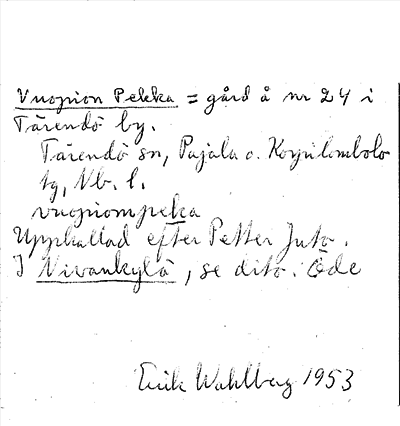 Vuopion Pekka = gård å nr 24 i
Tärendö by.
Tärendö sn, Pajala o. Korpilombolo
tg, Nb. l.
vuopiompekka
Uppkallad efter Petter Juto.
I Nivankylä, se dito. Öde
Erik Wahlberg 1953